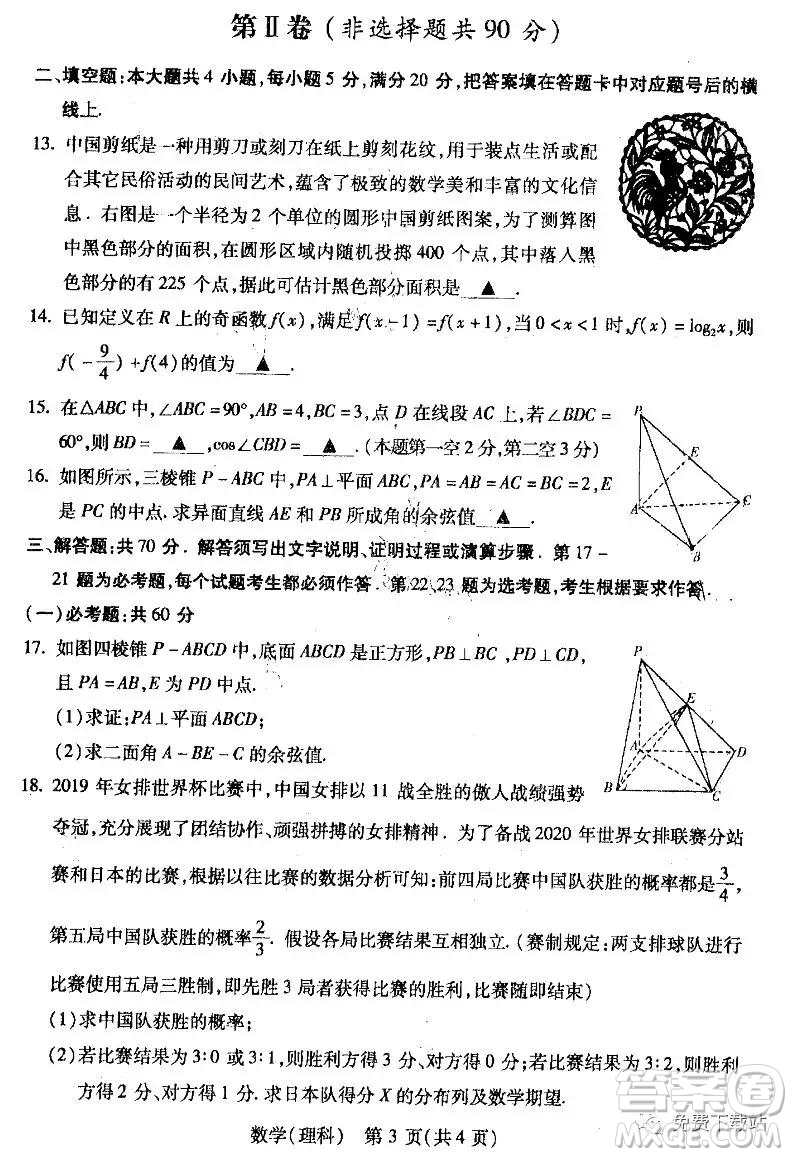 第Ⅱ卷(非选择题共90分)
二、填空题:本大题共4小题,每小题5分,满分20分,把答案填在答题卡中对应题号后的横
线上.
13. 中国剪纸是一种用剪刀或刻刀在纸上剪刻花纹,用于装点生活或配
合其它民俗活动的民间艺术,蕴含了极致的数学美和丰富的文化信
息.右图是一个半径为2个单位的圆形中国剪纸图案,为了测算图
中黑色部分的面积,在圆形区域内随机投掷400个点,其中落入黑
色部分的有225个点,据此可估计黑色部分的面积是 ▲ .
14. 已知定义在R上的奇函数f(x),满足f(x-1)=f(x+1),当0<x<1时,f(x)=log₂x,则
f(-9/4)+f(4)的值为 ▲ .
15. 在△ABC中,∠ABC=90°,AB=4,BC=3,点D在线段AC上,若∠BDC=
60°,则BD= ▲ ,cos∠CBD= ▲ .(本题第一空2分,第二空3分)
16. 如图所示,三棱锥P-ABC中,PA⊥平面ABC,PA=AB=AC=BC=2,E
是PC的中点.求异面直线AE和PB所成角的余弦值 ▲ .
P
E
A
C
B
三、解答题:共70分.解答须写出文字说明、证明过程或演算步骤.第17-
21题为必考题,每个试题考生都必须作答.第22、23题为选考题,考生根据要求作答.
(一)必考题:共60分
17. 如图四棱锥P-ABCD中,底面ABCD是正方形,PB⊥BC,PD⊥CD,
且PA=AB,E为PD中点.
(1)求证:PA⊥平面ABCD;
(2)求二面角A-BE-C的余弦值.
P
E
A
D
B
C
18. 2019年女排世界杯比赛中,中国女排以11战全胜的傲人战绩强势
夺冠,充分展现了团结协作、顽强拼搏的女排精神.为了备战2020年世界女排联赛分站
赛和日本的比赛,根据以往比赛的数据分析可知:前四局比赛中国队获胜的概率都是3/4,
第五局中国队获胜的概率2/3.假设各局比赛结果互相独立.(赛制规则:两支排球队进行
比赛使用五局三胜制,即先胜3局者获得比赛的胜利,比赛随即结束)
(1)求中国队获胜的概率;
(2)若比赛结果为3:0或3:1,则胜利方得3分、对方得0分;若比赛结果为3:2,则胜利
方得2分、对方得1分.求日本队得分X的分布列及数学期望.
数学(理科) 第3页(共4页)
答案圈
免费下载站
MXQE.COM